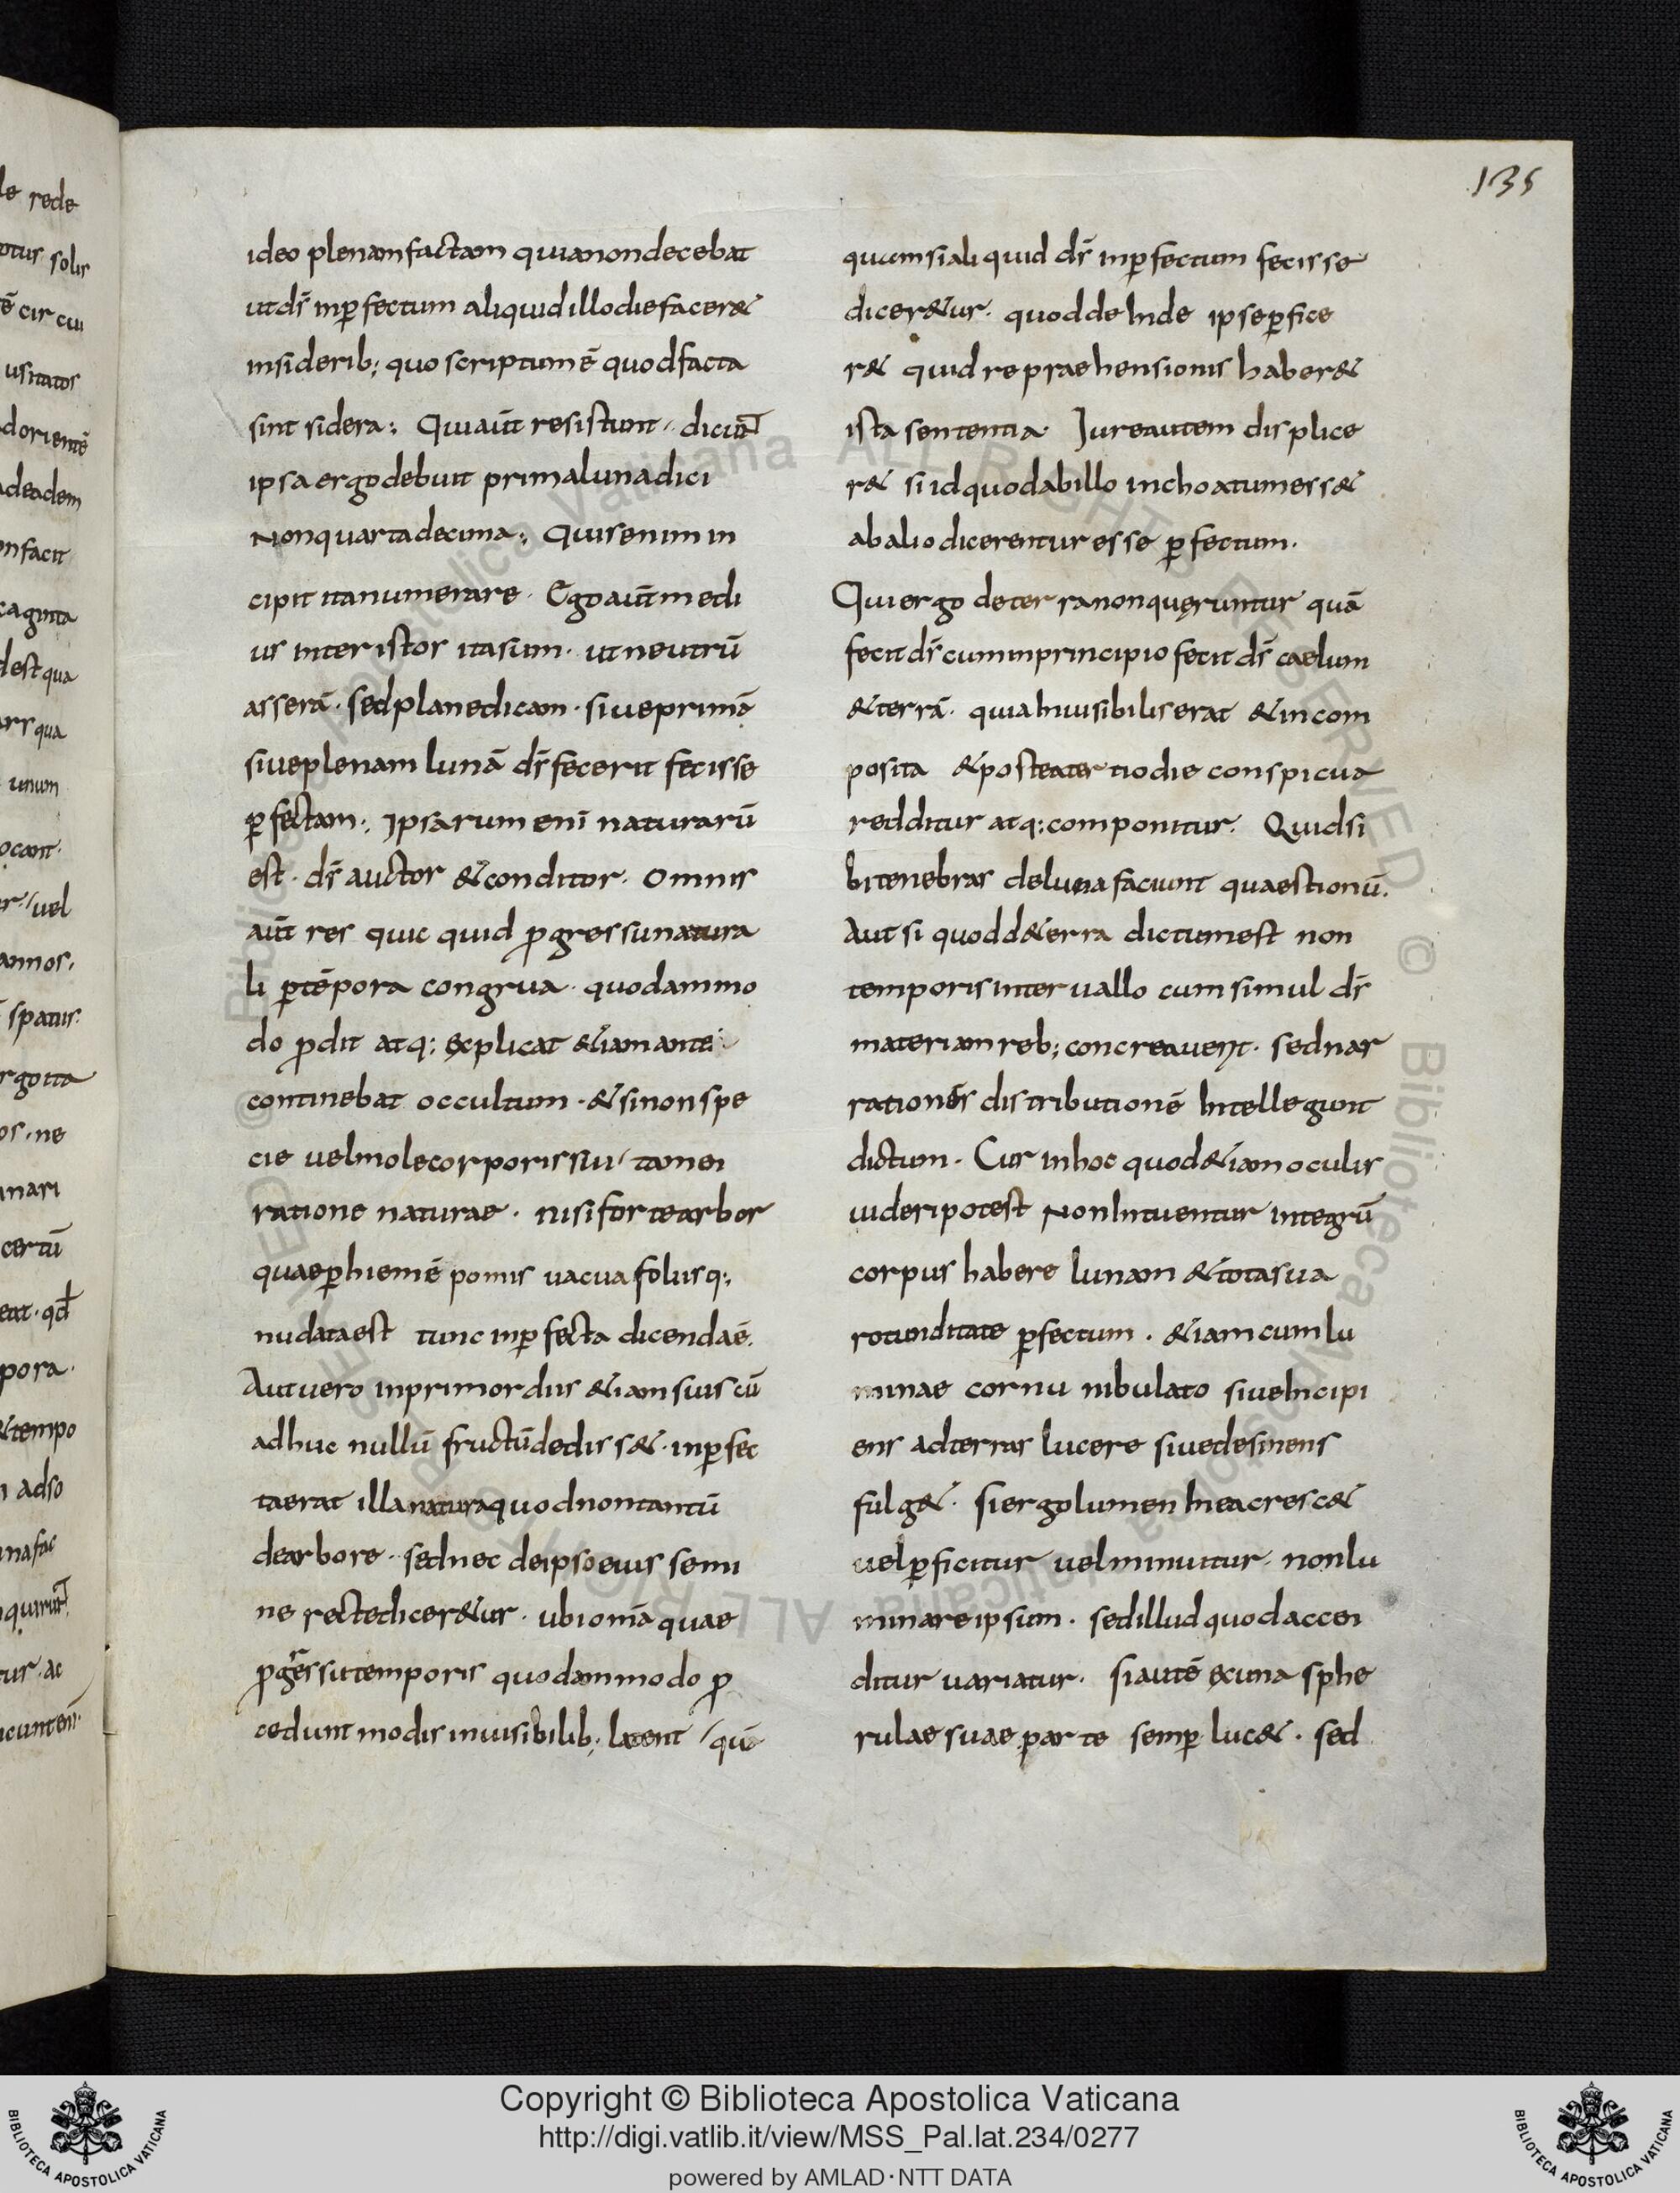 135
ideo plenam factam quia non decebat
ut ds̄ inꝑfectum aliquid illo die facer&
in siderib; quo scriptum ē quod facta
sint sidera; Qui aut̄ resistunt dicunt
ipsa ergo debuit prima luna dici
Non quarta decima; Quis enim in
cipit ita numerare · Ego aut̄ medi
us inter istos ita sum · ut neutrū
asserā · sed plane dicam · siue primā
siue plenam lunā ds̄ fecerit fecisse
ꝑfectam; Ipsarum eni naturarū
est · ds̄ auctor & conditor · Omnis
aut̄ res quic quid ꝓgressu natura
li ꝑ tēpora congrua · quodammo
do ꝓdit atq; explicat &iam ante
continebat occultum · & si non spe
cie uel mole corporis sui / tamen
ratione naturae · nisi forte arbor
quae ꝑ hiemē pomis uacua foliisq;
nudata est tunc inꝑfecta dicenda ē.
Aut uero in primordiis &iam suis cū
adhuc nullū fructū dediss& · inꝑfec
ta erat illa natura quod non tantū
de arbore · sed nec de ipso eius semi
ne recte dicer&ur · ubi omīa quae
ꝓgressu temporis quodammodo ꝓ
cedunt modis inuisibilib; latent / quā
quam si aliquid ds̄ inꝑfectum fecisse
dicer&ur · quod deinde ipse ꝑfice
r& quid repraehensionis haber&
ista sententia · Iure autem displice
r& si id quod ab illo inchoatum ess&
ab alio dicerentur esse ꝑfectum ·
Qui ergo de terra non quęruntur quā
fecit ds̄ cum in principio fecit ds̄ caelum
& terrā · quia inuisibilis erat & incom
posita & postea tertio die conspicua
redditur atq; componitur · Quid si
bi tenebras de luna faciunt quaestionū.
Aut si quod d& erra dictum est non
temporis interuallo cum simul ds̄
materiam reb; concreauerit · sed nar
rationes distributionē intellegunt
dictum · Cur in hoc quod &iam oculis
uideri potest Non intuentur integrū
corpus habere lunam & tota sua
rotunditate ꝑfectum · &iam cum lu
minae cornu nibulato siue incipi
ens ad terras lucere siue desinens
fulg& · si ergo lumen in ea cresc&
uel ꝑficitur uel minuitur · non lu
minare ipsum · sed illud quod accen
ditur uariatur · si autē ex una sphe
rulae suae parte semꝑ luc& · sed
Copyright © Biblioteca Apostolica Vaticana
http://digi.vatlib.it/view/MSS_Pal.lat.234/0277
powered by AMLAD·NTT DATA
BIBLIOTECA APOSTOLICA VATICANA
BIBLIOTECA APOSTOLICA VATICANA